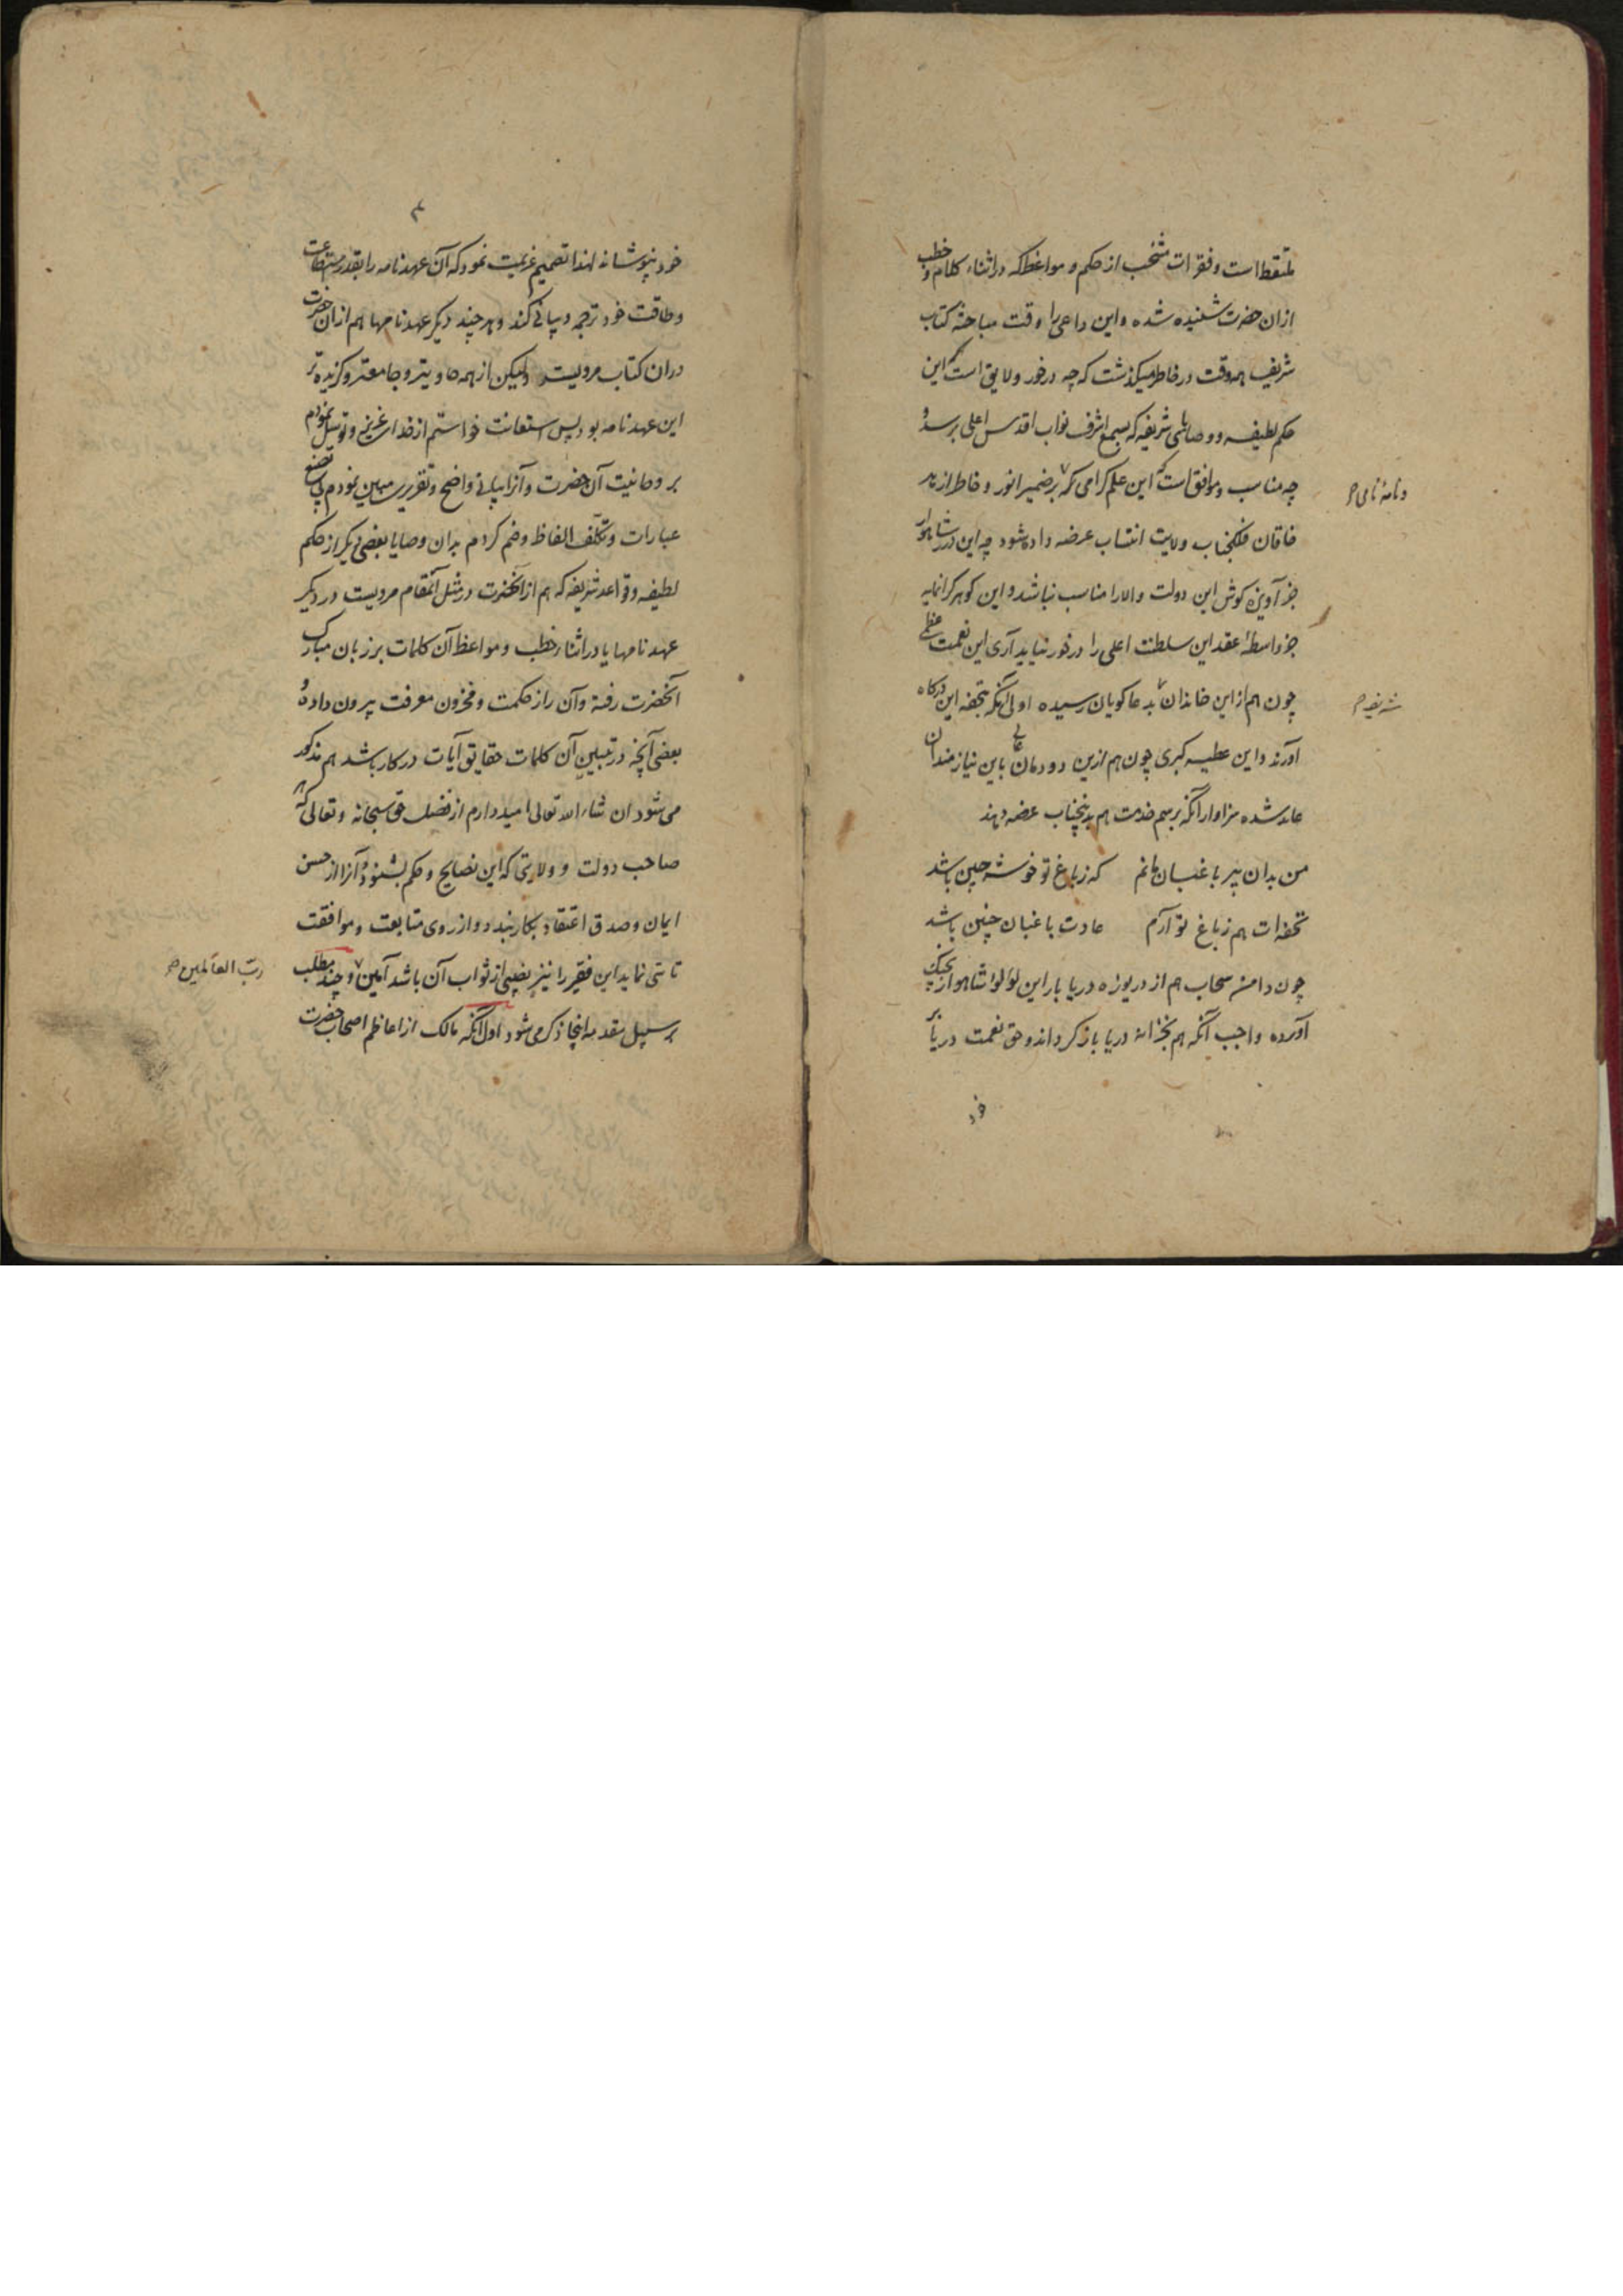 ملتقط است و فقرات منتخب از حکم و مواعظ که در اثناء کلام و خطب
ازان حضرت شنیده شده و این داعی را وقت مباحثه کتاب
شریف همه وقت در خاطر میگذشت که چه در خور و لایق است که این
حکم لطیفه و وصایای شریفه که بسمع اشرف نواب اقدس اعلی برسد و
چه مناسب و موافق است که این علم گرامی که بر ضمیر انور و خاطر ازهر
و نامهٔ نامی صح
خاقان فلکجناب ولایت انتساب عرضه داده شود چه این درر شاهوار
جز آویزه گوش این دولت والا را مناسب نباشد و این گوهر گرانمایه
جز واسطهٔ عقد این سلطنت اعلی را در خور نیاید آری این نعمت عظمی
چون هم از این خاندان بدعاگویان رسیده اولی آنکه بتحفه این درگاه
شریفه صح
آورند و این عطیه کبری چون هم ازین دودمان عالی باین نیازمندان
عاید شده سزاوار آنکه برسم خدمت هم بدینجناب عرضه دهند
من بدان پیر باغبان مانم که ز باغ تو خوشه چین باشد
تحفه ات هم ز باغ تو آرم عادت باغبان چنین باشد
چون دامن سحاب هم از دریوزه دریا بار این لؤلؤا شاهوار بچنگ
آورده واجب آنکه هم بخزانه دریا باز گرداند و حق نعمت دریا بر
خود
۳
خود نپوشاند لهذا تصمیم عزیمت نمود که آن عهدنامه را بقدر استطاعت
و طاقت خود ترجمه و بیانی کند و هر چند دیگر عهدنامها هم ازان حضرت
دران کتاب مرویست ولیکن از همه حاویتر و جامعتر و گزیده تر
این عهدنامه بود پس استعانت خواستم از خدای عزیز و توسل نمودم
بر وحانیت آن حضرت و آنرا ببیانی واضح و تقریری مبین نمودم بی تصنع
عبارات و تکلف الفاظ و ضم کردم بدان وصایا بعضی دیگر از حکم
لطیفه و قواعد شریفه که هم از آنحضرت در مثل آنمقام مرویست در دیگر
عهدنامها یا در اثناء خطب و مواعظ آن کلمات بر زبان مبارک
آنحضرت رفته و آن راز حکمت و مخزون معرفت بیرون داده و
بعضی آنچه در تبیین آن کلمات حقایق آیات در کار باشد هم مذکور
می شود ان شاء الله تعالی امیدوارم از فضل حق سبحانه و تعالی که هر
صاحب دولت و ولایتی که این نصایح و حکم بشنود و آنرا از حسن
ایمان و صدق اعتقاد بکار بندد و از روی متابعت و موافقت
تاسی نماید این فقیر را نیز نصیبی از ثواب آن باشد آمین و چند مطلب
رب العالمین صح
بر سبیل مقدمه اینجا ذکر می شود اول آنکه مالک از اعاظم اصحاب حضرت